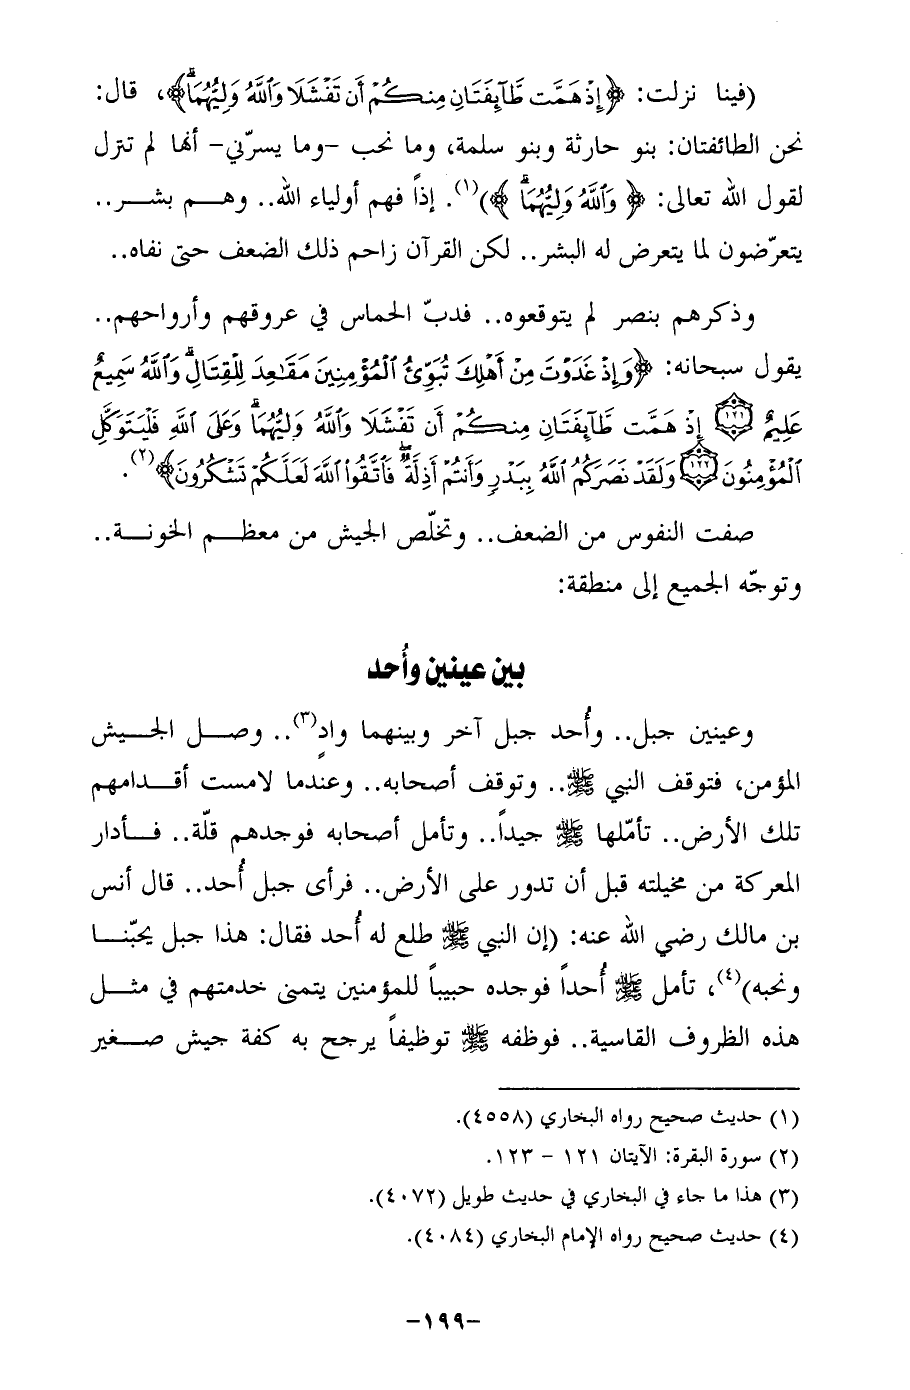 (فينا نزلت: ﴿إِذْ هَمَّت طَّآئِفَتَانِ مِنكُمْ أَن تَفْشَلَا وَٱللَّهُ وَلِيُّهُمَا﴾، قال:
نحن الطائفتان: بنو حارثة وبنو سلمة، وما نحب -وما يسرّني- أنها لم تنزل
لقول الله تعالى: ﴿ وَٱللَّهُ وَلِيُّهُمَا ﴾)(١). إذاً فهم أولياء الله.. وهـم بشـر..
يتعرّضون لما يتعرض له البشر.. لكن القرآن زاحم ذلك الضعف حتى نفاه..
وذكرهم بنصر لم يتوقعوه.. فدبّ الحماس في عروقهم وأرواحهم..
يقول سبحانه: ﴿وَإِذْ غَدَوْتَ مِنْ أَهْلِكَ تُبَوِّئُ ٱلْمُؤْمِنِينَ مَقَٰعِدَ لِلْقِتَالِ وَٱللَّهُ سَمِيعٌ
عَلِيمٌ ١٢١ إِذْ هَمَّت طَّآئِفَتَانِ مِنكُمْ أَن تَفْشَلَا وَٱللَّهُ وَلِيُّهُمَا وَعَلَى ٱللَّهِ فَلْيَتَوَكَّلِ
ٱلْمُؤْمِنُونَ ١٢٢ وَلَقَدْ نَصَرَكُمُ ٱللَّهُ بِبَدْرٍ وَأَنتُمْ أَذِلَّةٌ فَٱتَّقُوا۟ ٱللَّهَ لَعَلَّكُمْ تَشْكُرُونَ﴾(٢).
صفت النفوس من الضعف.. وتخلّص الجيش من معظـم الخونـة..
وتوجّه الجميع إلى منطقة:
بين عينين وأُحد
وعينين جبل.. وأُحد جبل آخر وبينهما وادٍ(٣).. وصـل الجـيش
المؤمن، فتوقف النبي ﷺ.. وتوقف أصحابه.. وعندما لامست أقـدامهم
تلك الأرض.. تأمّلها ﷺ جيداً.. وتأمل أصحابه فوجدهم قلّة.. فـأدار
المعركة من مخيلته قبل أن تدور على الأرض.. فرأى جبل أُحد.. قال أنس
بن مالك رضي الله عنه: (إن النبي ﷺ طلع له أُحد فقال: هذا جبل يحبّنـا
ونحبه)(٤)، تأمل ﷺ أُحداً فوجده حبيباً للمؤمنين يتمنى خدمتهم في مثـل
هذه الظروف القاسية.. فوظفه ﷺ توظيفاً يرجح به كفة جيش صـغير
(١) حديث صحيح رواه البخاري (٤٥٥٨).
(٢) سورة البقرة: الآيتان ١٢١ - ١٢٣.
(٣) هذا ما جاء في البخاري في حديث طويل (٤٠٧٢).
(٤) حديث صحيح رواه الإمام البخاري (٤٠٨٤).
-١٩٩-